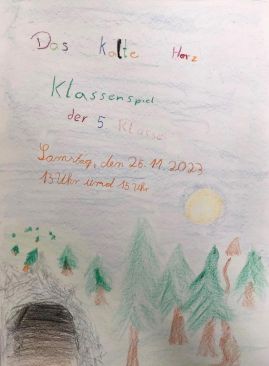 Das kalte Herz
Klassenspiel
der 5 Klasse
Samstag, den 25.11.2023
13 Uhr und 15 Uhr